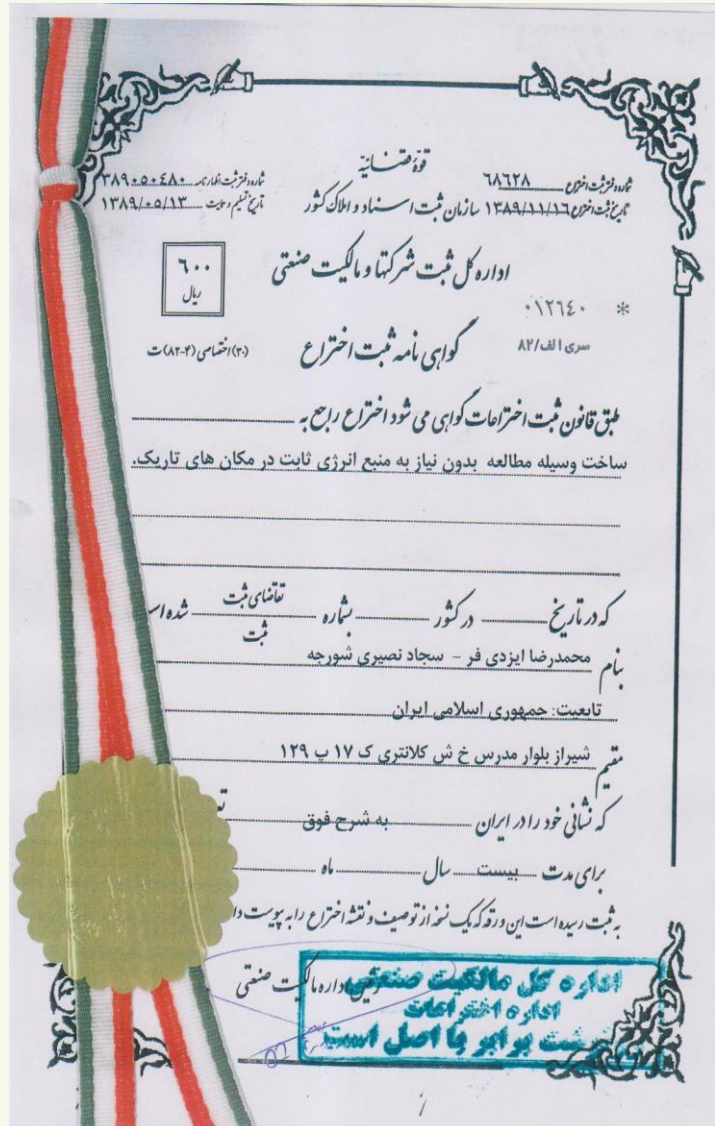 قوه قضائیه
شماره دفتر ثبت اختراع ۶۸۶۲۸
شماره دفتر ثبت اظهارنامه ۳۸۹۰۵۰۴۸۰
تاریخ ثبت اختراع ۱۳۸۹/۱۱/۱۶
سازمان ثبت اسناد و املاک کشور
تاریخ تسلیم و حمایت ۱۳۸۹/۰۵/۱۳
اداره کل ثبت شرکتها و مالکیت صنعتی
۶۰۰
ریال
* ۰۱۲۶۴۰
سری الف/۸۲
گواهی نامه ثبت اختراع
(۳۰) اختصاصی (۴-۸۲) ت
طبق قانون ثبت اختراعات گواهی می شود اختراع راجع به
ساخت وسیله مطالعه بدون نیاز به منبع انرژی ثابت در مکان های تاریک.
که در تاریخ در کشور بشماره تقاضای ثبت
ثبت شده
بنام محمدرضا ایزدی فر - سجاد نصیری شورجه
تابعیت: جمهوری اسلامی ایران
مقیم شیراز بلوار مدرس خ ش کلانتری ک ۱۷ پ ۱۲۹
که نشانی خود را در ایران به شرح فوق
برای مدت بیست سال ماه
به ثبت رسیده است این ورقه که یک نسخه از توصیف و نقشه اختراع را به پیوست
اداره مالکیت صنعتی
اداره کل مالکیت صنعتی
اداره اختراعات
برابر با اصل است